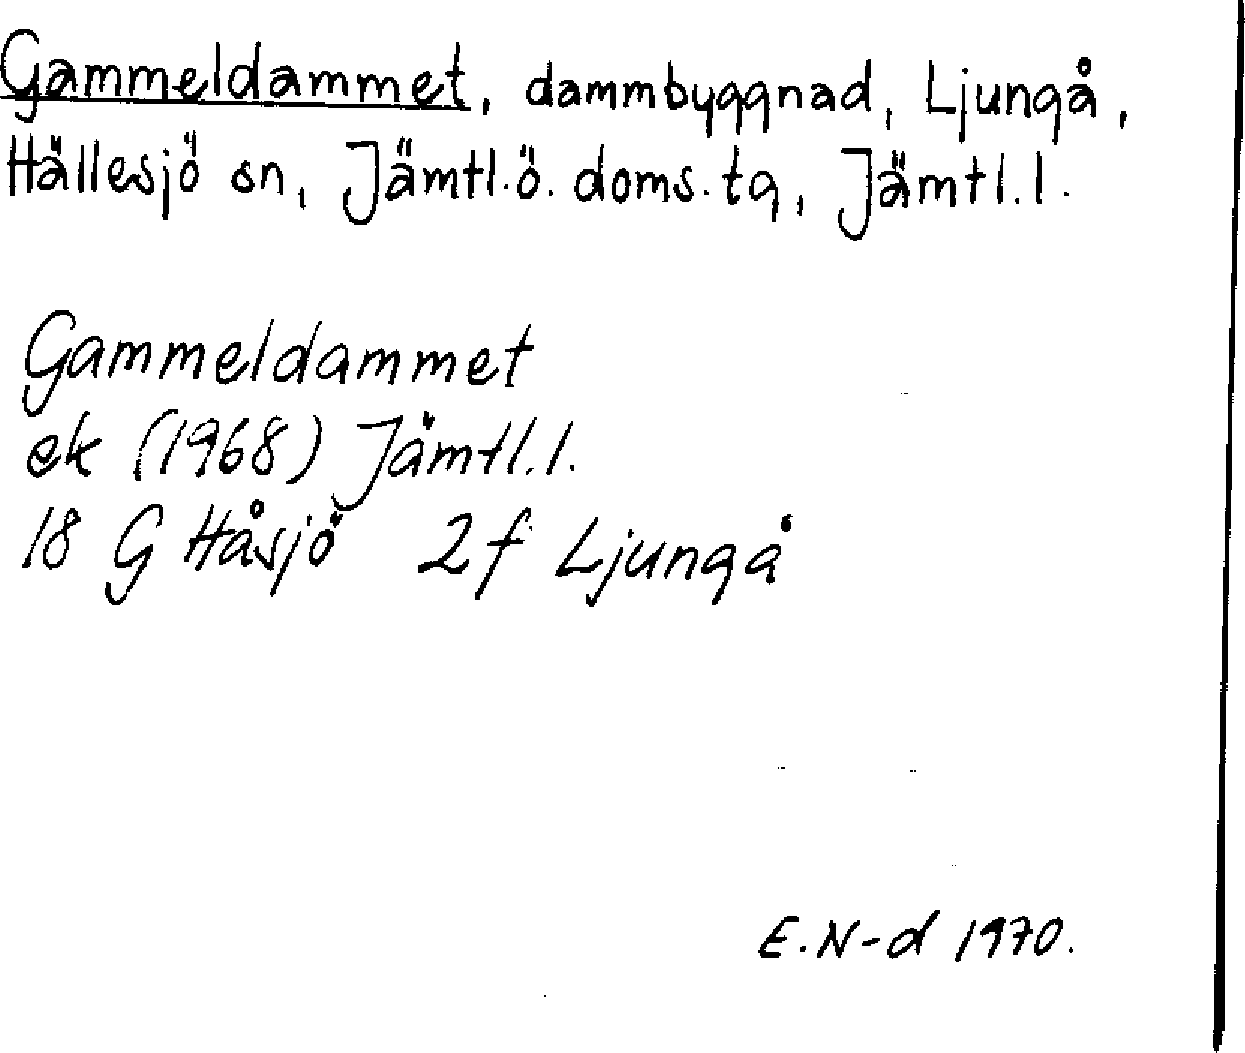 Gammeldammet, dammbyggnad, Ljungå,
Hällesjö sn, Jämtl.ö.doms.tg, Jämtl.l.
Gammeldammet
ek (1968) Jämtl.l.
18 G Håsjö 2f Ljungå
E.N-d 1970.